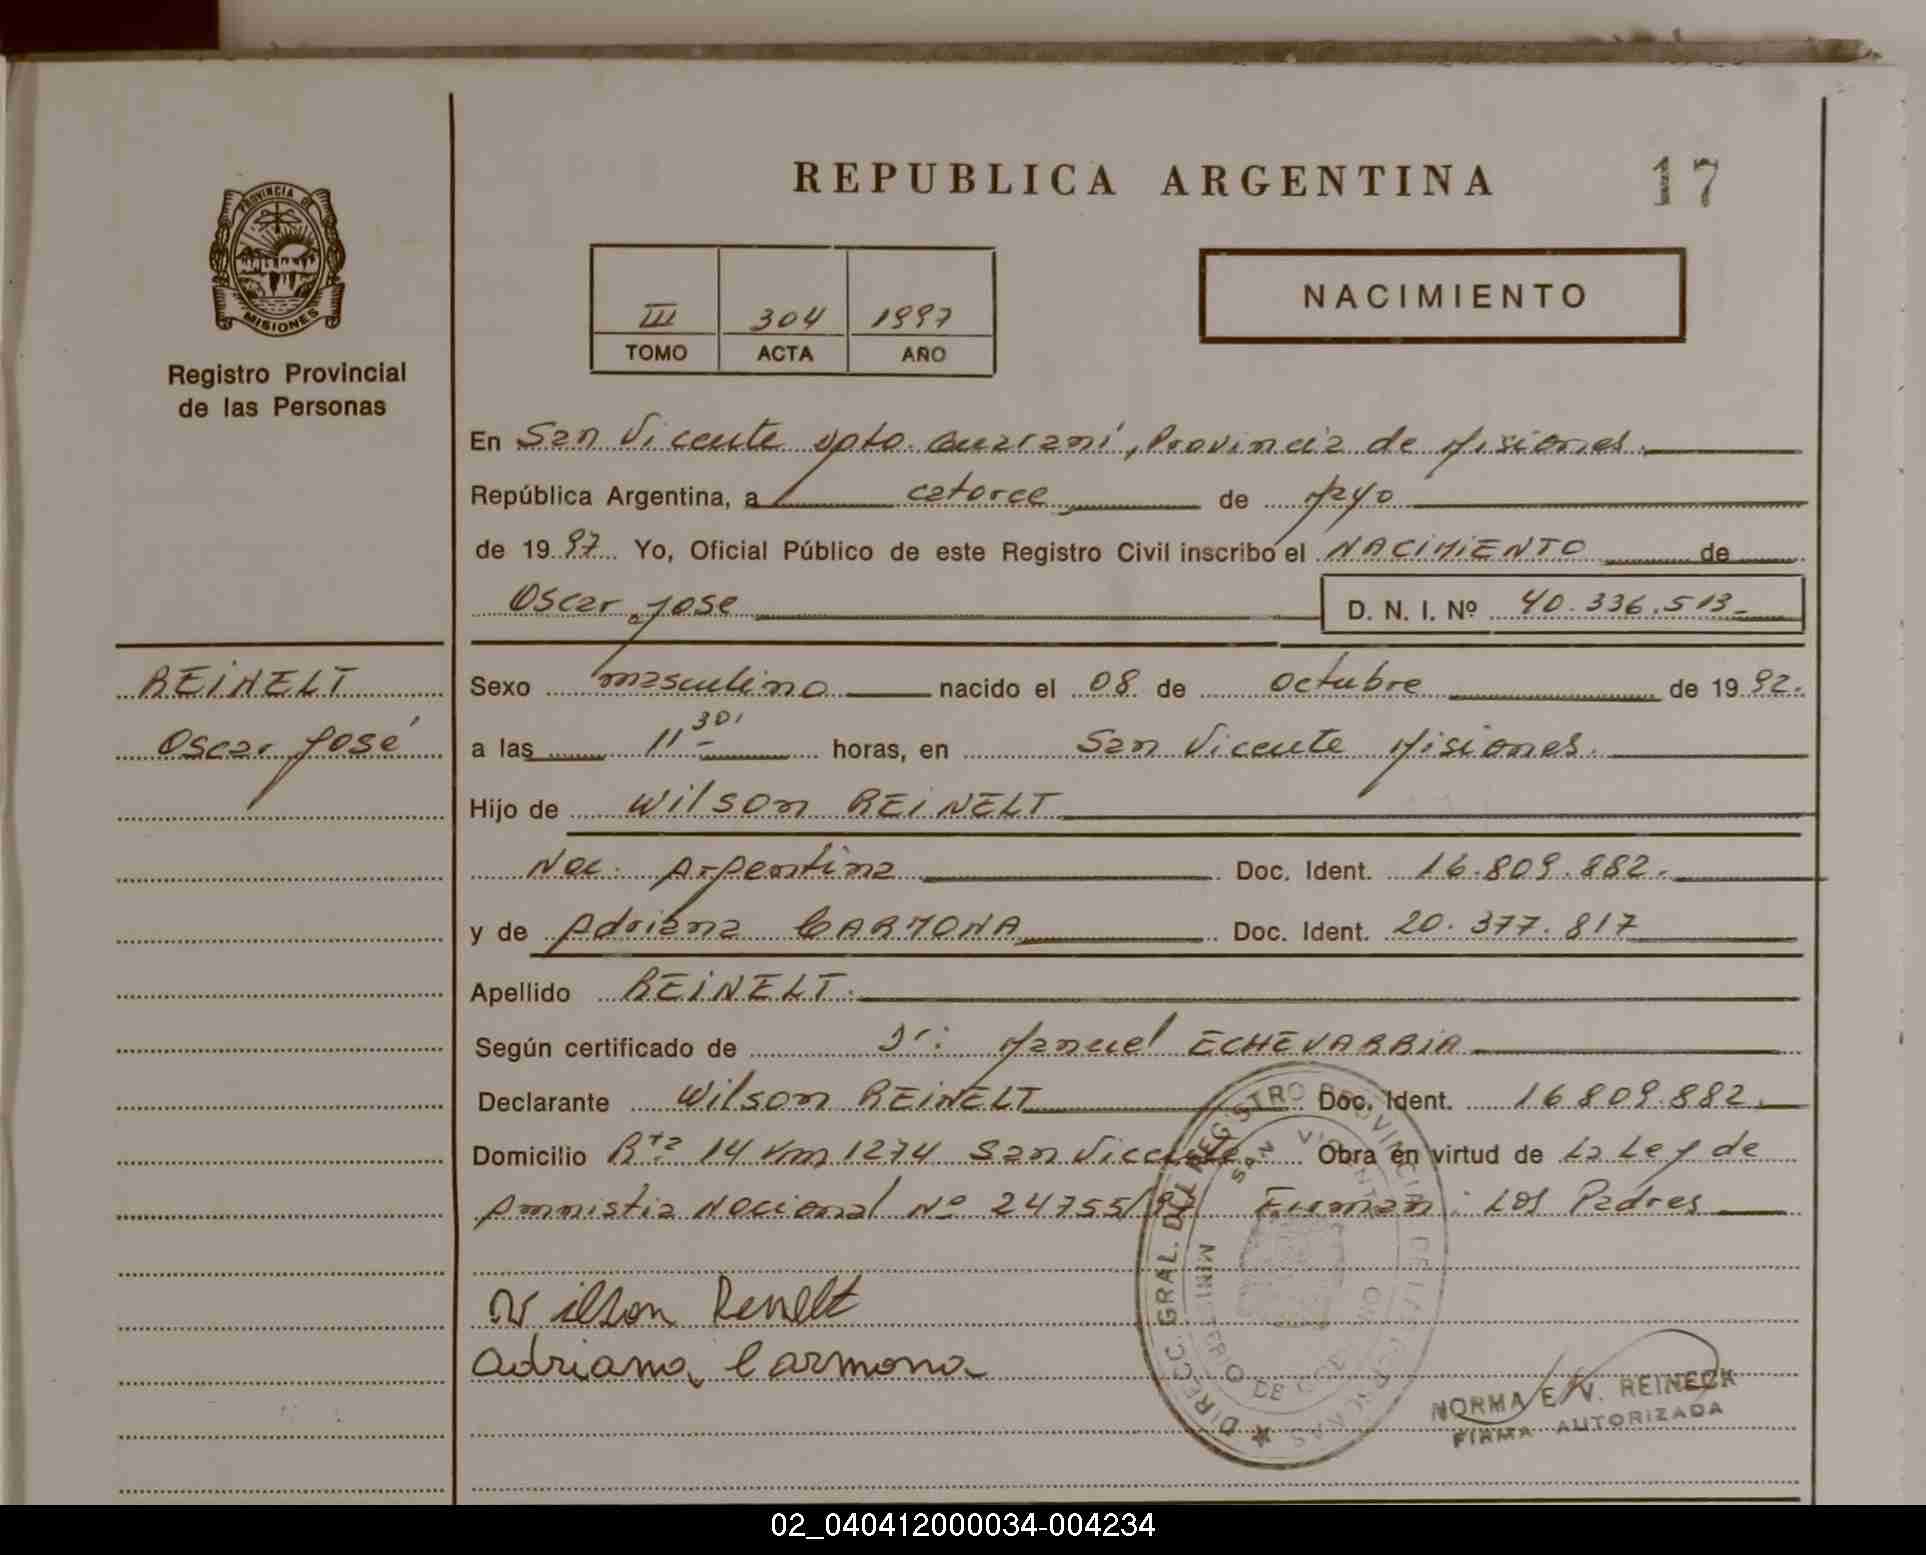 REPUBLICA ARGENTINA
17
PROVINCIA DE
MISIONES
Registro Provincial
de las Personas
III 304 1997
TOMO ACTA AÑO
NACIMIENTO
En San Vicente Dpto. Guaraní, Provincia de Misiones.
República Argentina, a catorce de Mayo
de 1997 Yo, Oficial Público de este Registro Civil inscribo el NACIMIENTO de
Oscar Jose D. N. I. Nº 40.336.513-
REINELT
Oscar José
Sexo masculino nacido el 08 de Octubre de 1992.
a las 11 30' horas, en San Vicente Misiones.
Hijo de Wilson REINELT
Nac. Argentina Doc. Ident. 16.809.882.
y de Adriana CARMONA Doc. Ident. 20.377.817
Apellido REINELT.
Según certificado de Dr: Manuel ECHEVARRIA
Declarante Wilson REINELT Doc. Ident. 16809.882.
Domicilio Rta 14 Km 1274 San Vicente Obra en virtud de La Ley de
Amnistia Nacional Nº 24755/97 Firman: Los Padres
Wilson Renelt
Adriana Carmona
DIRECC. GRAL. DEL REGISTRO PROVINCIAL DE LAS PERSONAS
SAN VICENTE
MINISTERIO DE GOBIERNO
NORMA E. V. REINECK
FIRMA AUTORIZADA
02_040412000034-004234